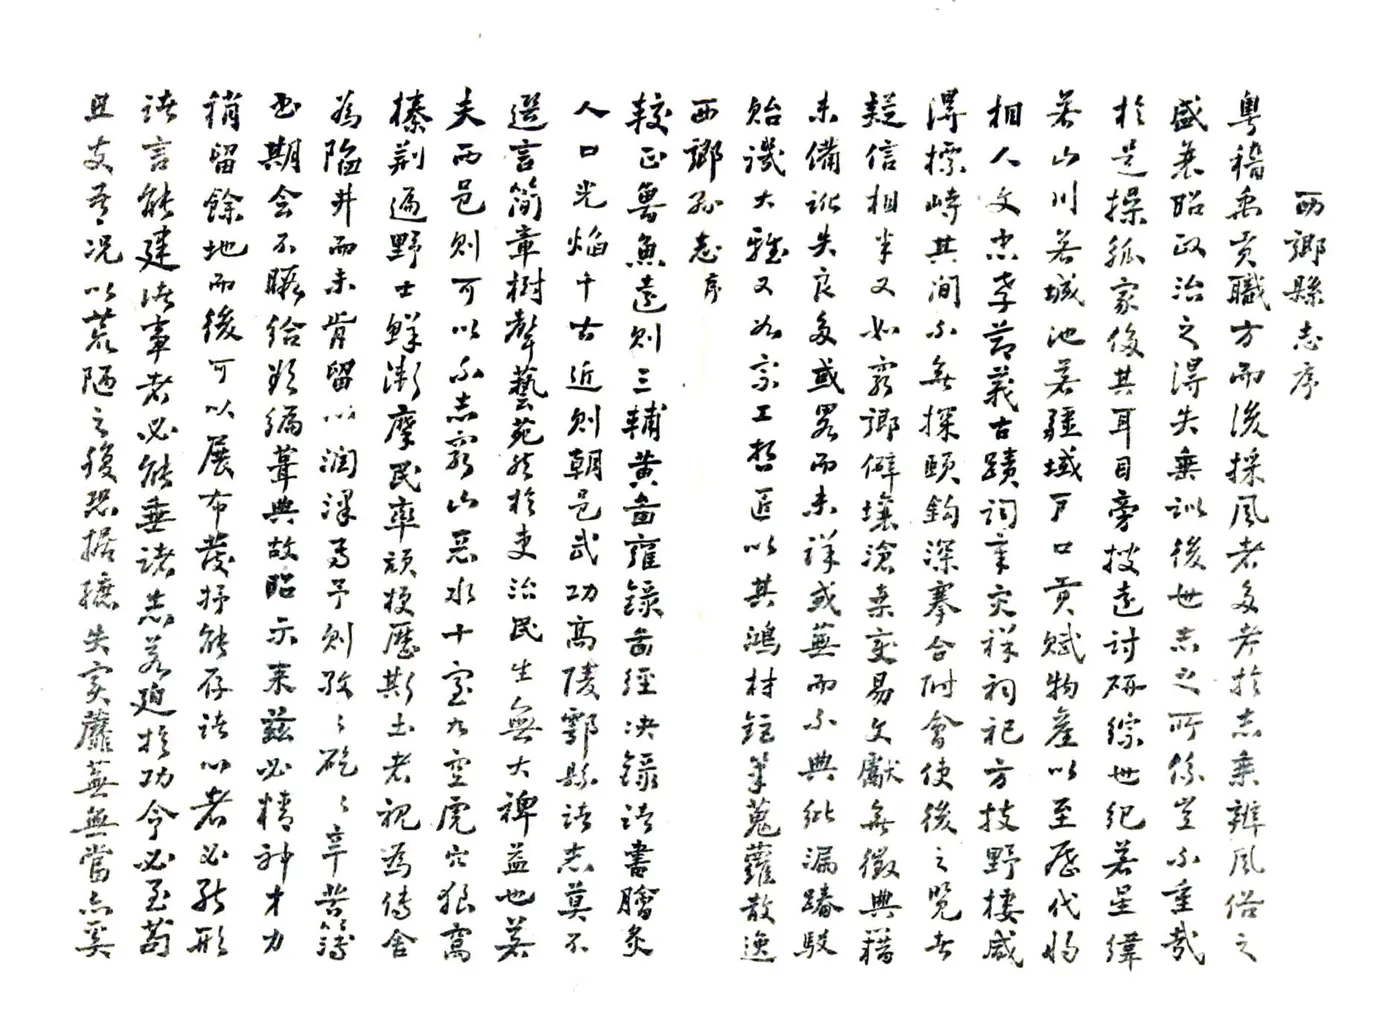 西鄉縣志序
粵稽禹貢職方而後採風者多考於志乘辨風俗之
盛衰昭政治之得失垂訓後世志之所係豈不重哉
於是操觚家俊其耳目旁搜遠討研綜世紀若星緯
若山川若城池若疆域戶口貢賦物產以至歷代將
相人文忠孝節義古蹟詞章災祥祠祀方技野棲咸
得標峙其間不無探賾鈎深搴合附會使後之覽者
疑信相半又如窮鄉僻壤滄桑變易文獻無徵典籍
未備訛失良多或畧而未詳或蕪而不典紕漏踳駁
貽譏大雅又必宗工哲匠以其鴻材鉅筆蒐蘿散逸
西鄉縣志序
較正魯魚遠則三輔黃圖雍錄圖經決錄諸書膾炙
人口光焰千古近則朝邑武功高陵鄠縣諸志莫不
選言簡章樹聲藝苑然於吏治民生無大裨益也若
夫西邑則可以不志窮山惡水十室九空虎穴狼窩
榛荆遍野士鮮漸摩民率頑梗歷斯土者視為傳舍
為陷井而未肯留以潤澤焉予則孜〻矻〻辛苦簿
書期會不暇給欲編葺典故昭示来茲必精神才力
稍留餘地而後可以展布發抒能存諸心者必能形
諸言能建諸事者必能垂諸志若迫於功令必至苟
且支吾况以荒陋之後恐掂摭失實蘼蕪無當亦奚